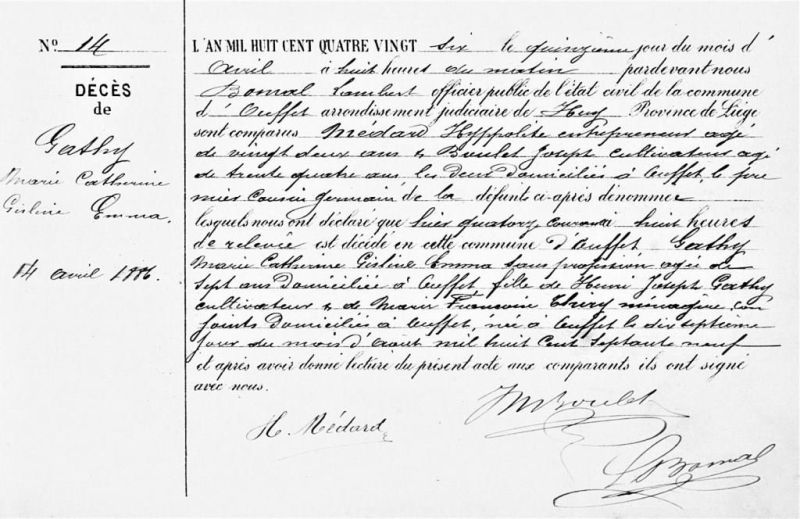 N° 14
DÉCÈS
de
Gathy
Marie Catherine
Gisline Emma.
14 avril 1886.
L'AN MIL HUIT CENT QUATRE VINGT six le quinzième jour du mois d'
avril à huit heures du matin pardevant nous
Bomal Lambert officier public de l'état civil de la commune
d'Ouffet arrondissement judiciaire de Huy Province de Liége
sont comparus Médard Hyppolite entrepreneur agé
de vingt deux ans & Boulet Joseph cultivateur agé
de trente quatre ans les deux domiciliés à Ouffet, le pre
mier cousin germain de la défunte ci-après dénommée
lesquels nous ont déclaré que hier quatorze courant à huit heures
de relevée est décédé en cette commune d'Ouffet Gathy
Marie Catherine Gisline Emma sans profession agée de
sept ans domiciliée à Ouffet fille de Henri Joseph Gathy
cultivateur & de Marie Thiry ménagère con
joints domiciliés à Ouffet, née à Ouffet le dix septième
jour du mois d'aout mil huit cent septante neuf
et après avoir donné lecture du présent acte aux comparants ils ont signé
avec nous.
H. Médard
Boulet
Bomal